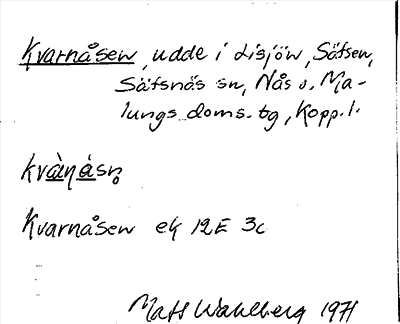 Kvarnåsen, udde i Lisjön, Säfsen,
Säfsnäs sn, Nås o. Ma-
lungs doms. tg, Kopp. l.
kvàṇásn̥
Kvarnåsen ek 12E 3c
Mats Wahlberg 1971